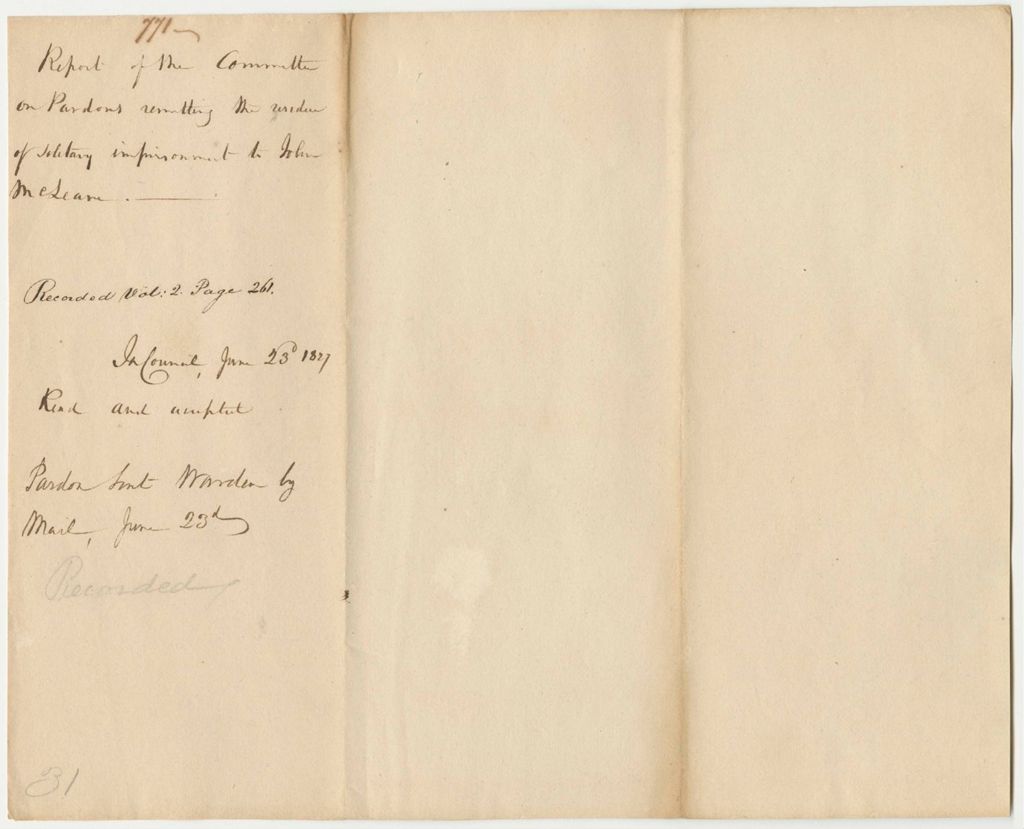 771
Report of the Committee
on Pardons remitting the residue
of solitary imprisonment to John
McLeane.
Recorded Vol: 2. Page 261.
In Council, June 23d 1827
Read and accepted
Pardon sent Warden by
Mail, June 23d
Recorded
31